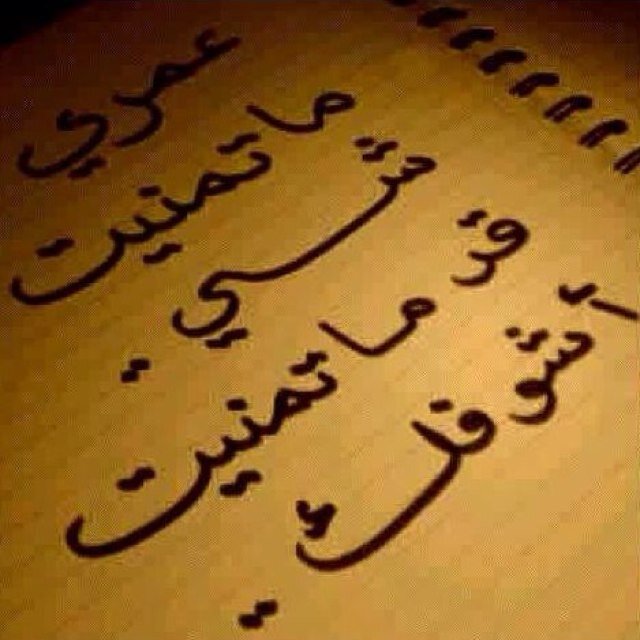 عمري
ما تمنيت
شي
قد ما تمنيت
أشوفك